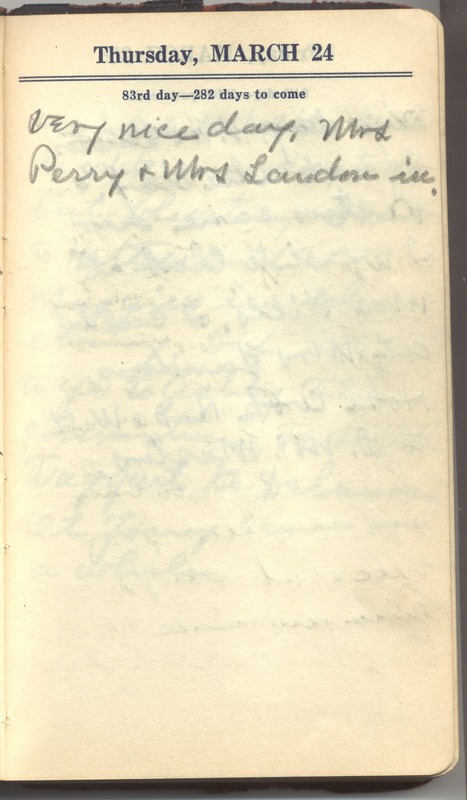 Thursday, MARCH 24
83rd day—282 days to come
Very nice day, Mrs
Perry + Mrs Landon in.